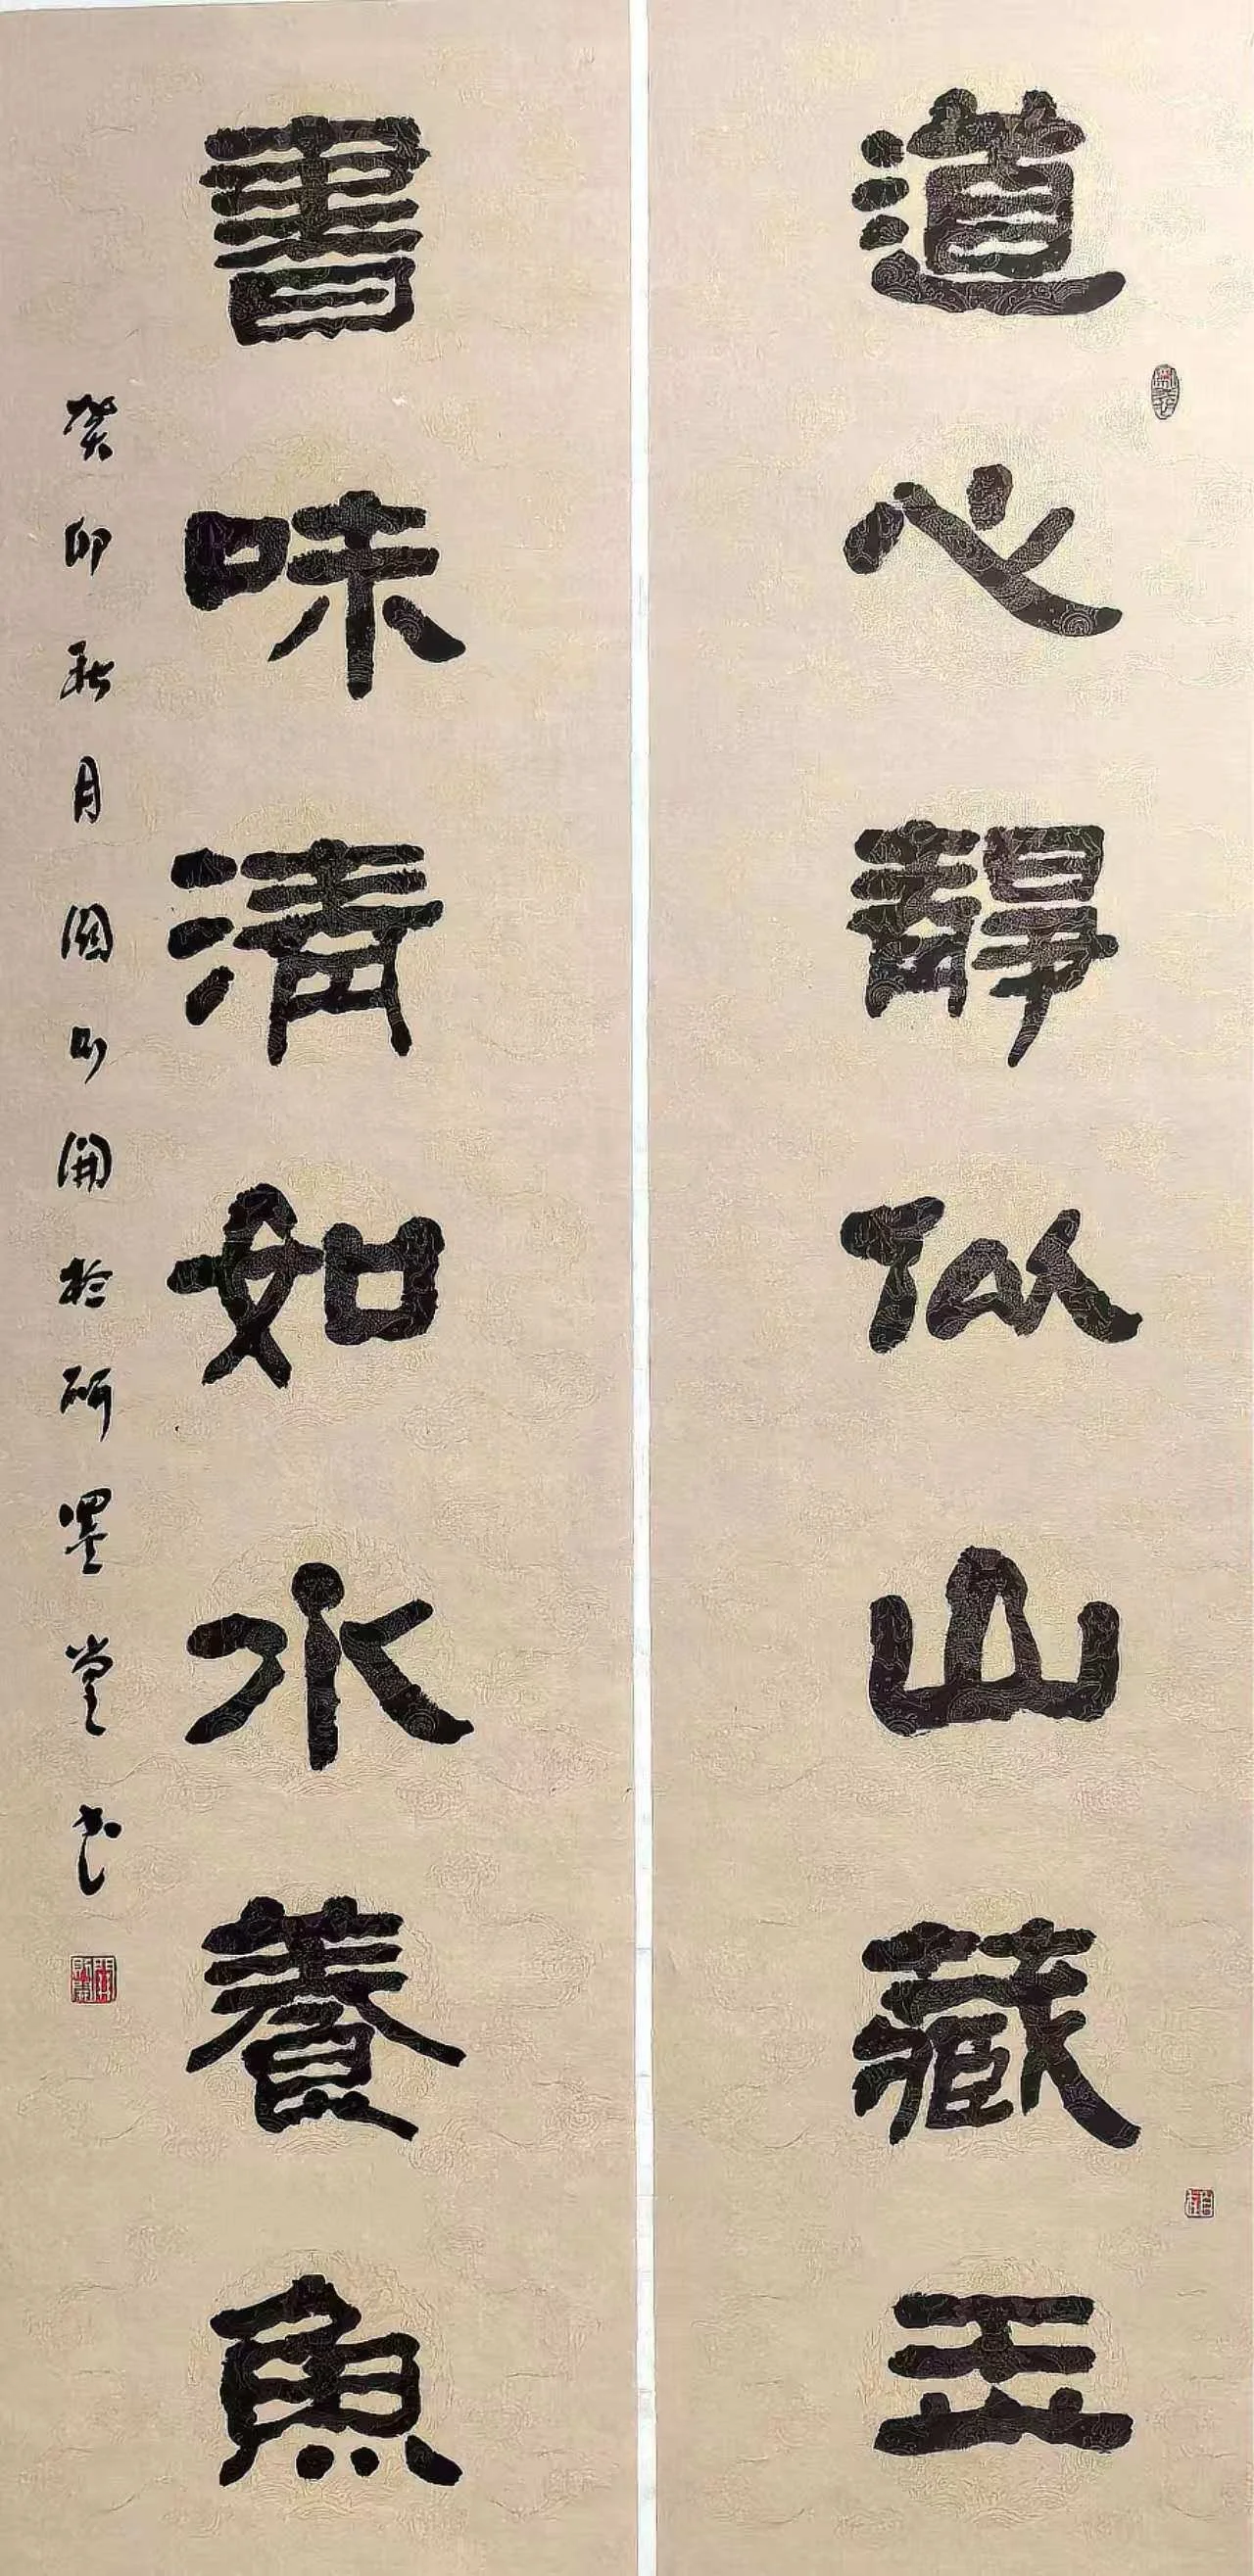 道心靜似山藏玉
書味清如水養魚
癸卯秋月國開於研墨堂書